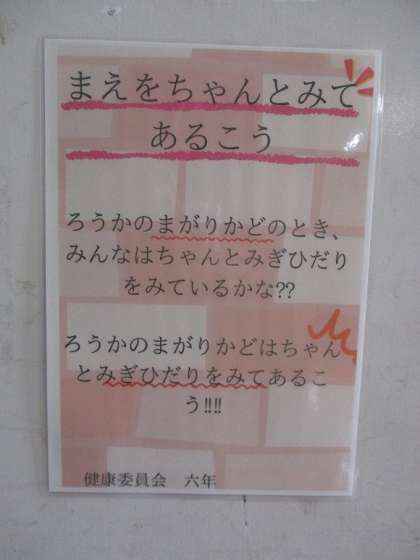 まえをちゃんとみて
あるこう
ろうかのまがりかどのとき、
みんなはちゃんとみぎひだり
をみているかな??
ろうかのまがりかどはちゃん
とみぎひだりをみてあるこ
う!!!!
健康委員会　六年